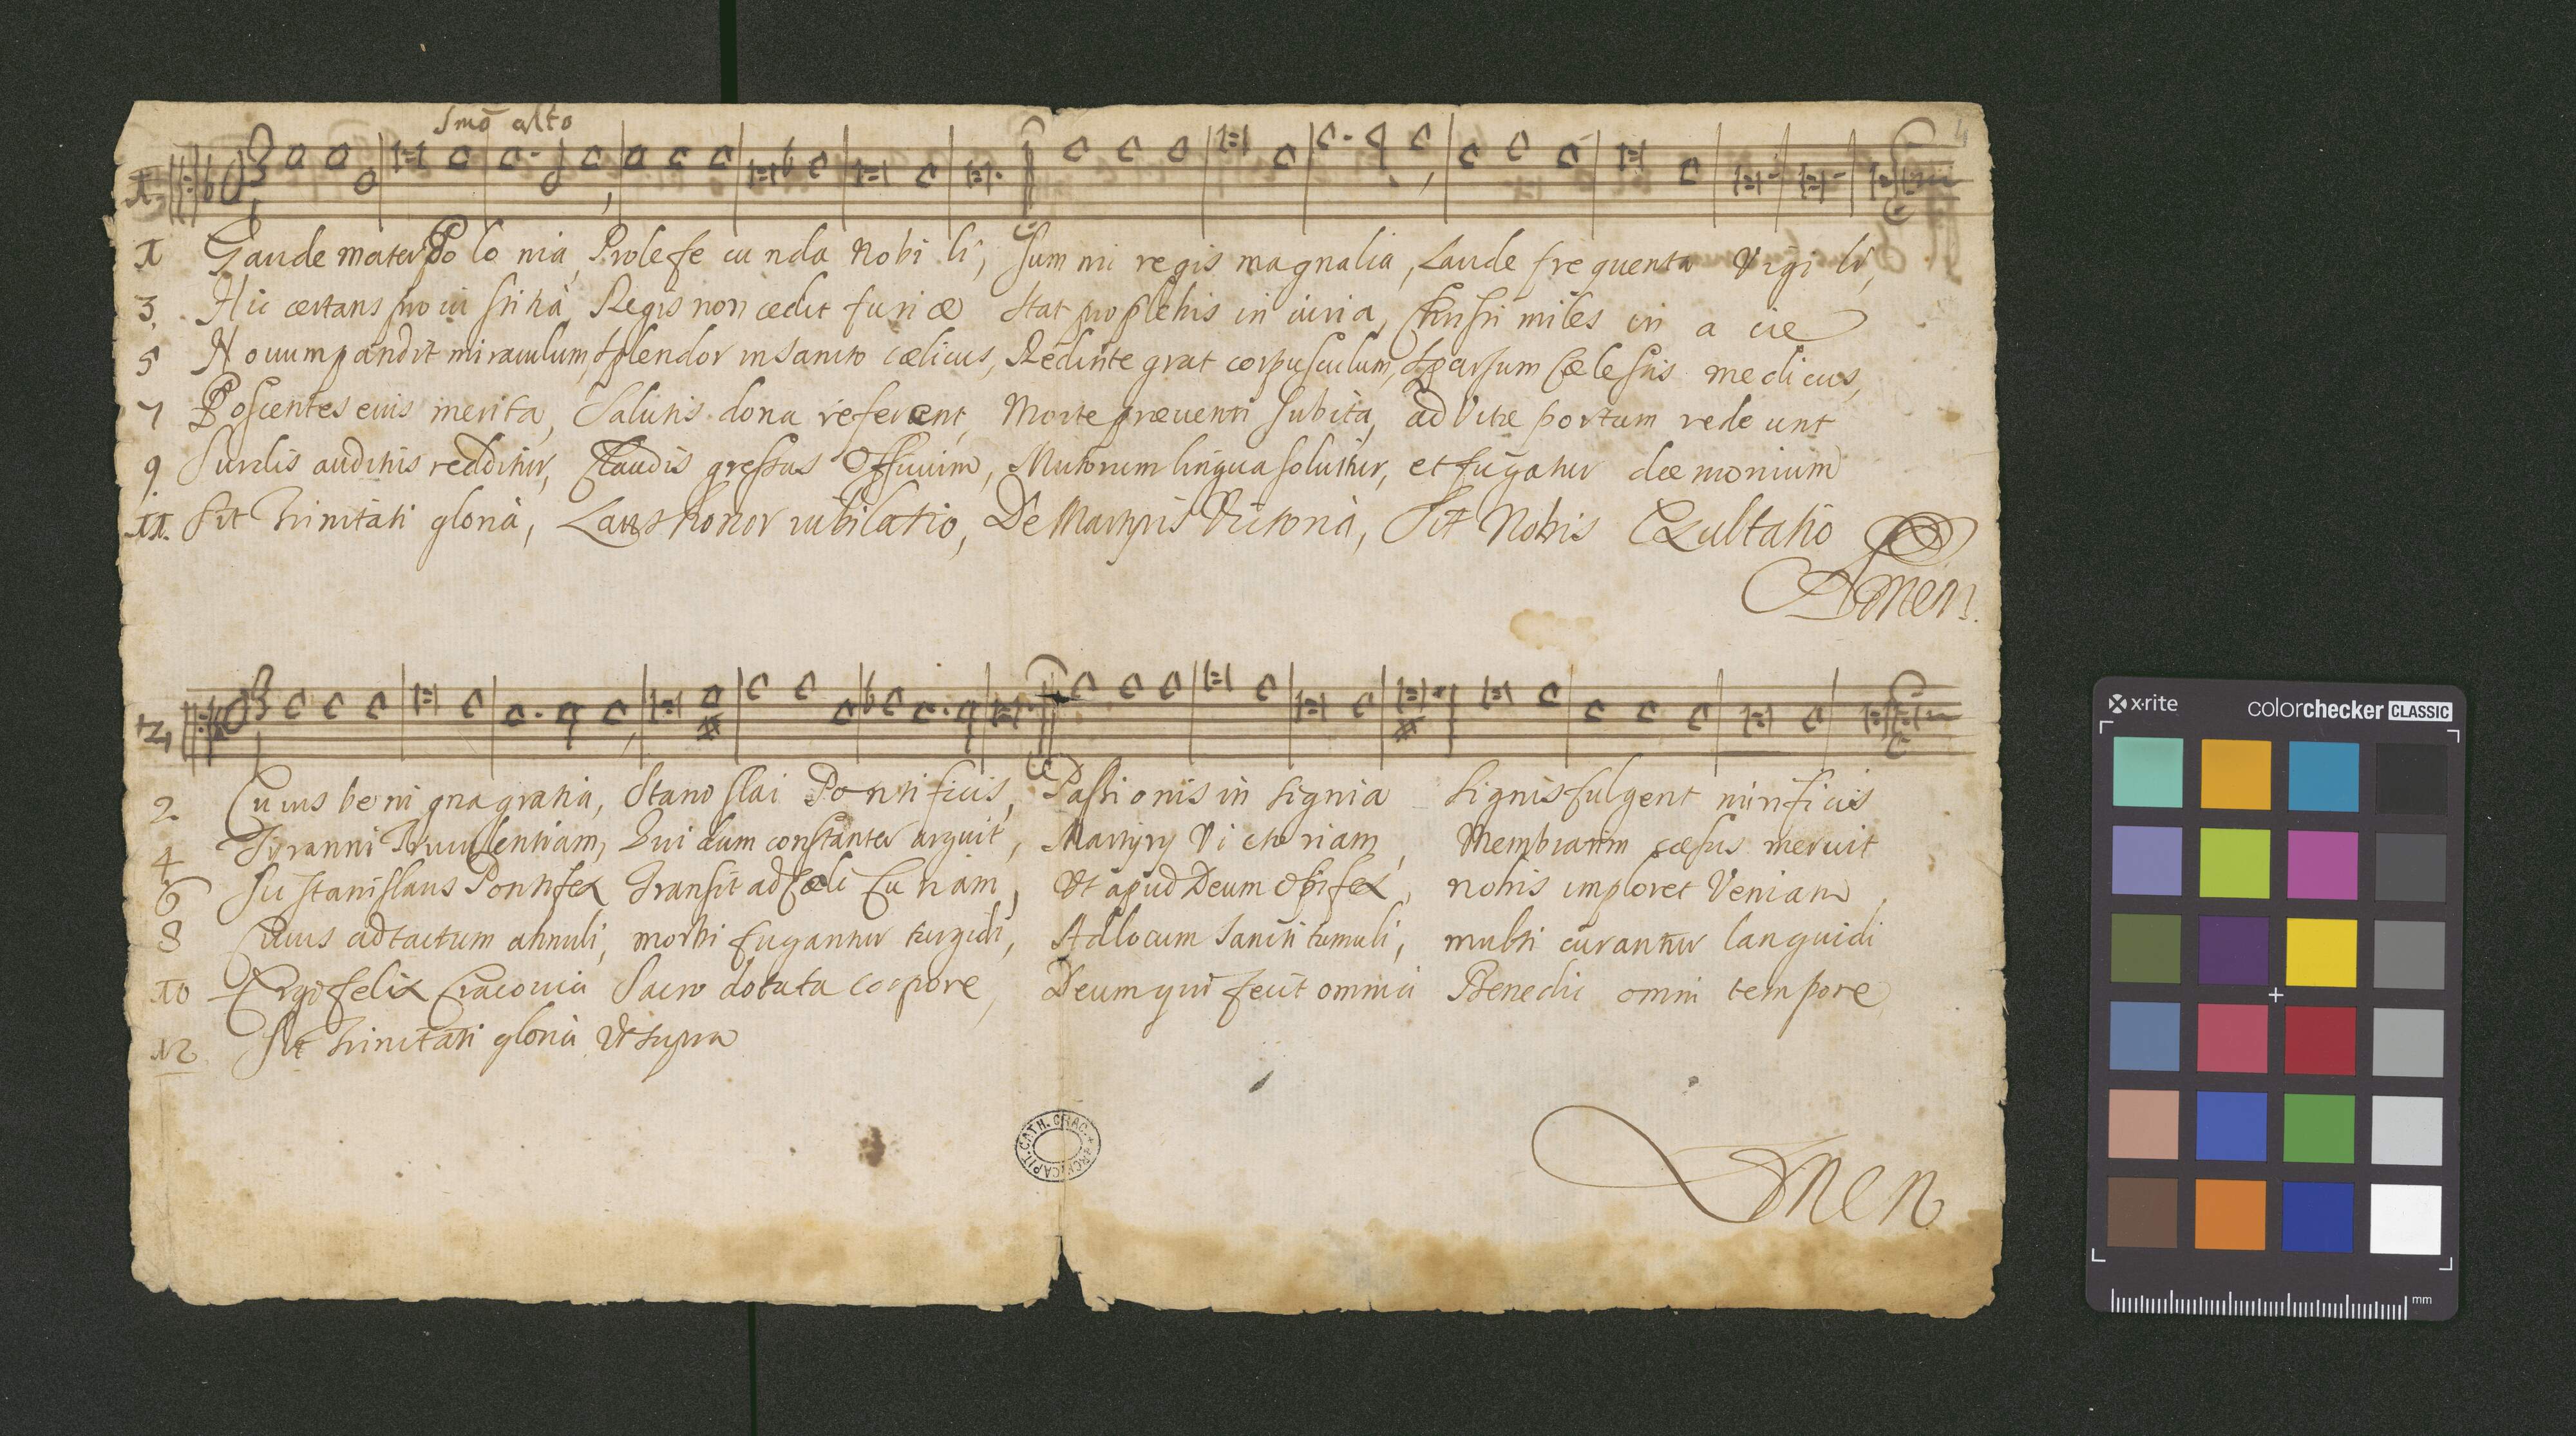 Smo alto
4
1.
1 Gaude mater Po lo nia, Prole fe cu nda Nobi li, Sum mi regis magnalia, Laude fre quenta Vigi li,
3. Hic certans pro iu stitia, Regis non cedit furiæ Stat pro plebis in iuria, Christi miles in a cie
5 Nouum pandit miraculum, Splendor in Sancto cælicus, Redinte grat corpusculum, Sparsum Cæle stis medicus,
7 Poscentes eius merita, Salutis dona referent, Morte præuenti Subita, ad Vitæ portam rede unt
9 Surdis auditus redditur, Claudis gressus Officium, Mutorum lingua soluitur, et fugatur dæ monium
11. Sit Trinitati gloria, Laus honor iubilatio, De Martyris Victoria, Sit Nobis Exultatio
Amen.
2
2 Cu ius be ni gna gratia, Stani slai Pontificis, Passi o nis in signia Signis fulgent mirificis
4 Tyranni Truculentiam, Qui dum constanter arguit, Martyry Vi cto riam, Membratim cæsus meruit
6 Sic Stanislaus Pontifex Transit ad Cæli Cu riam, Vt apud Deum Opifex, nobis imploret Veniam,
8 Cuius ad tactum annuli, morbi fugantur turgidi, Ad locum Sancti tumuli, multi curantur languidi
10 Ergo felix Cracouia Sacro dotata corpore, Deum qui fecit omnia Benedic omni tempore
12 Sit Trinitati gloria Vt supra
ARCH. CAPIT. CATH. CRAC.
Amen
x·rite colorchecker CLASSIC
mm